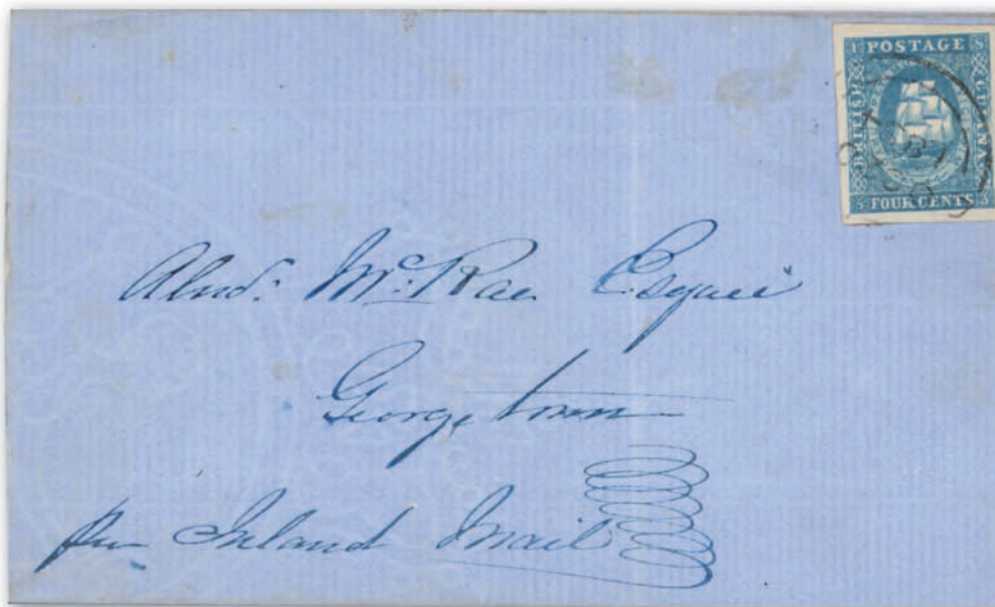 POSTAGE
BRITISH
GUIANA
1 8
5 3
FOUR CENTS
Alexdr. McRae Esquire
Georgetown
per Inland Mail